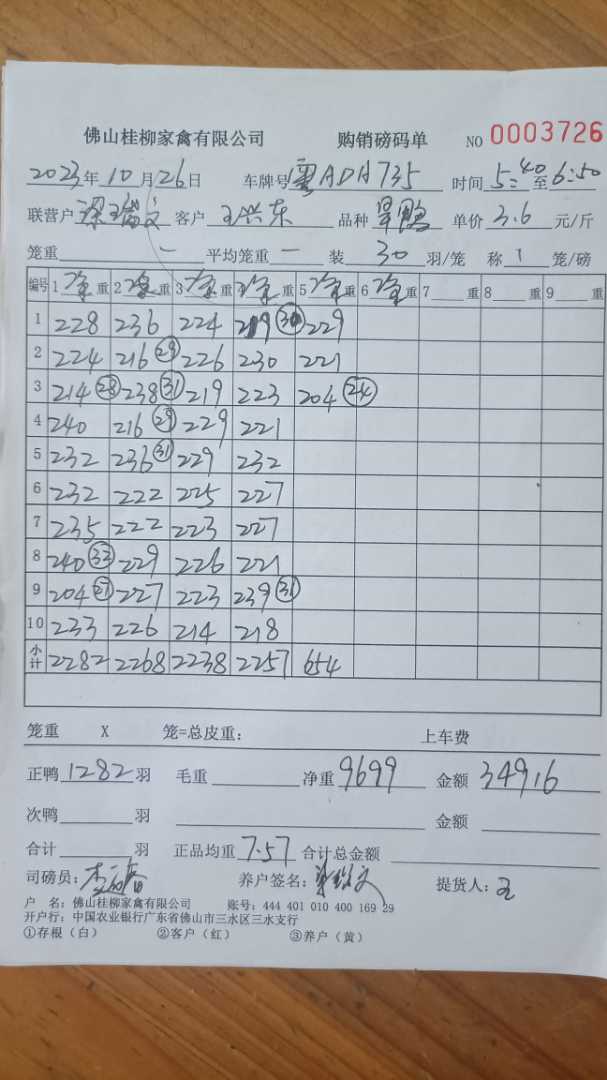 佛山桂柳家禽有限公司 购销磅码单 NO 0003726
2023年10月26日 车牌号粤ADA735 时间5:40至6:50
联营户梁瑞文 客户王兴东 品种旱鸭 单价3.6元/斤
笼重一 平均笼重一 装30羽/笼 称1笼/磅
编号 1净重 2净重 3净重 净重 5净重 6净重 7重 8重 9重
1 228 236 224 219(30) 229
2 224 216(29) 226 230 221
3 214(28) 238(31) 219 223 204(24)
4 240 216(29) 229 221
5 232 236(31) 229 232
6 232 222 225 227
7 235 222 223 227
8 240(32) 229 226 221
9 204(27) 227 223 239(31)
10 233 226 214 218
小计 2282 2268 2238 2257 654
笼重 X 笼=总皮重: 上车费
正鸭1282羽 毛重 净重9699 金额34916
次鸭 羽 金额
合计 羽 正品均重7.57 合计总金额
司磅员: 李 养户签名: 梁瑞文 提货人: 王
户 名: 佛山桂柳家禽有限公司 账号: 444 401 010 400 169 29
开户行: 中国农业银行广东省佛山市三水区三水支行
①存根(白) ②客户(红) ③养户(黄)